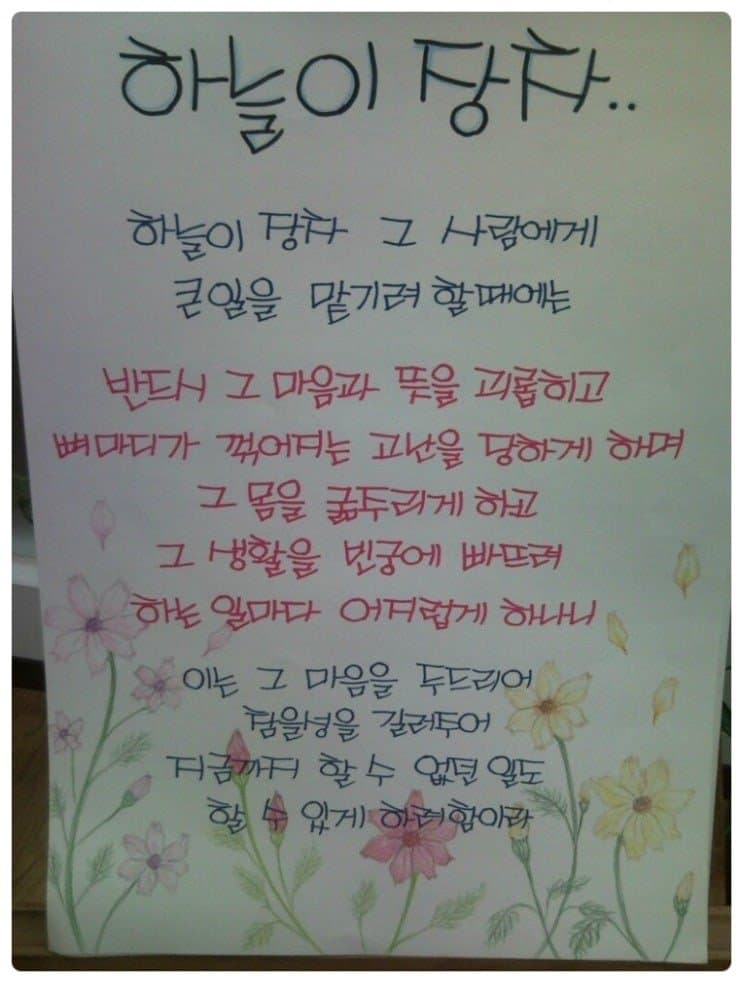 하늘이 장차..
하늘이 장차 그 사람에게
큰일을 맡기려 할때에는
반드시 그 마음과 뜻을 괴롭히고
뼈마디가 꺾어지는 고난을 당하게 하며
그 몸을 굶주리게 하고
그 생활을 빈궁에 빠뜨려
하는 일마다 어지럽게 하나니
이는 그 마음을 두드리어
참을성을 길러주어
지금까지 할 수 없던 일도
할 수 있게 하려함이라